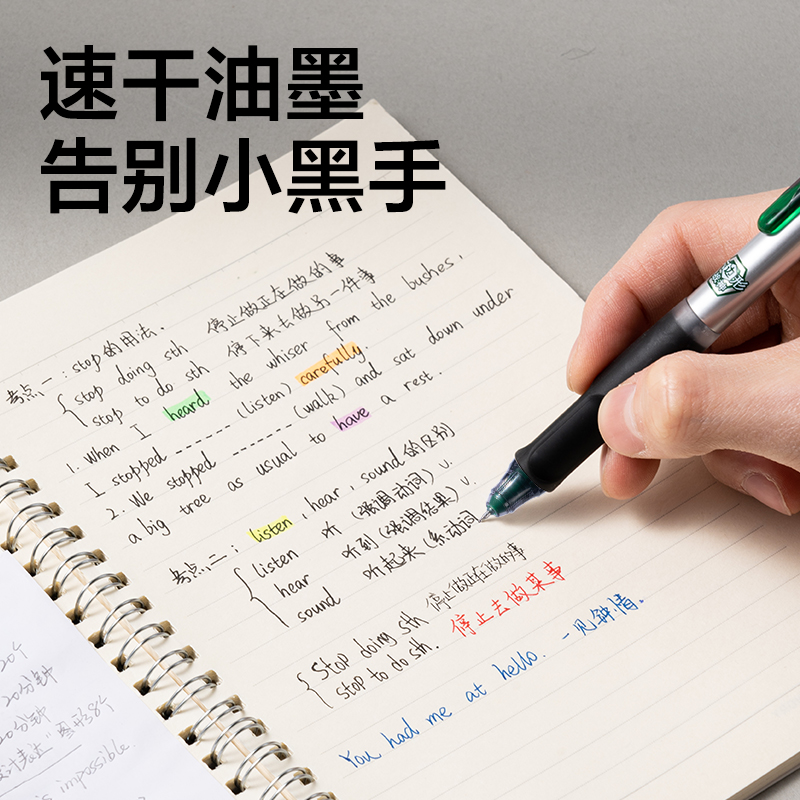 速干油墨
告别小黑手
考点一：stop的用法.
stop doing sth 停止做正在做的事
stop to do sth 停下来去做另一件事
1. When I heard the whiser from the bushes,
I stopped ------- (listen) carefully.
2. We stopped ------- (walk) and sat down under
a big tree as usual to have a rest.
考点二：listen, hear, sound的区别
listen 听 (强调动词) v.
hear 听到 (强调结果) v.
sound 听起来 (系动词
Stop doing sth 停止做正在做的事
stop to do sth. 停止去做某事
You had me at hello. 一见钟情。
20个
20分钟
20分钟
计表达"图形38个
is impossible